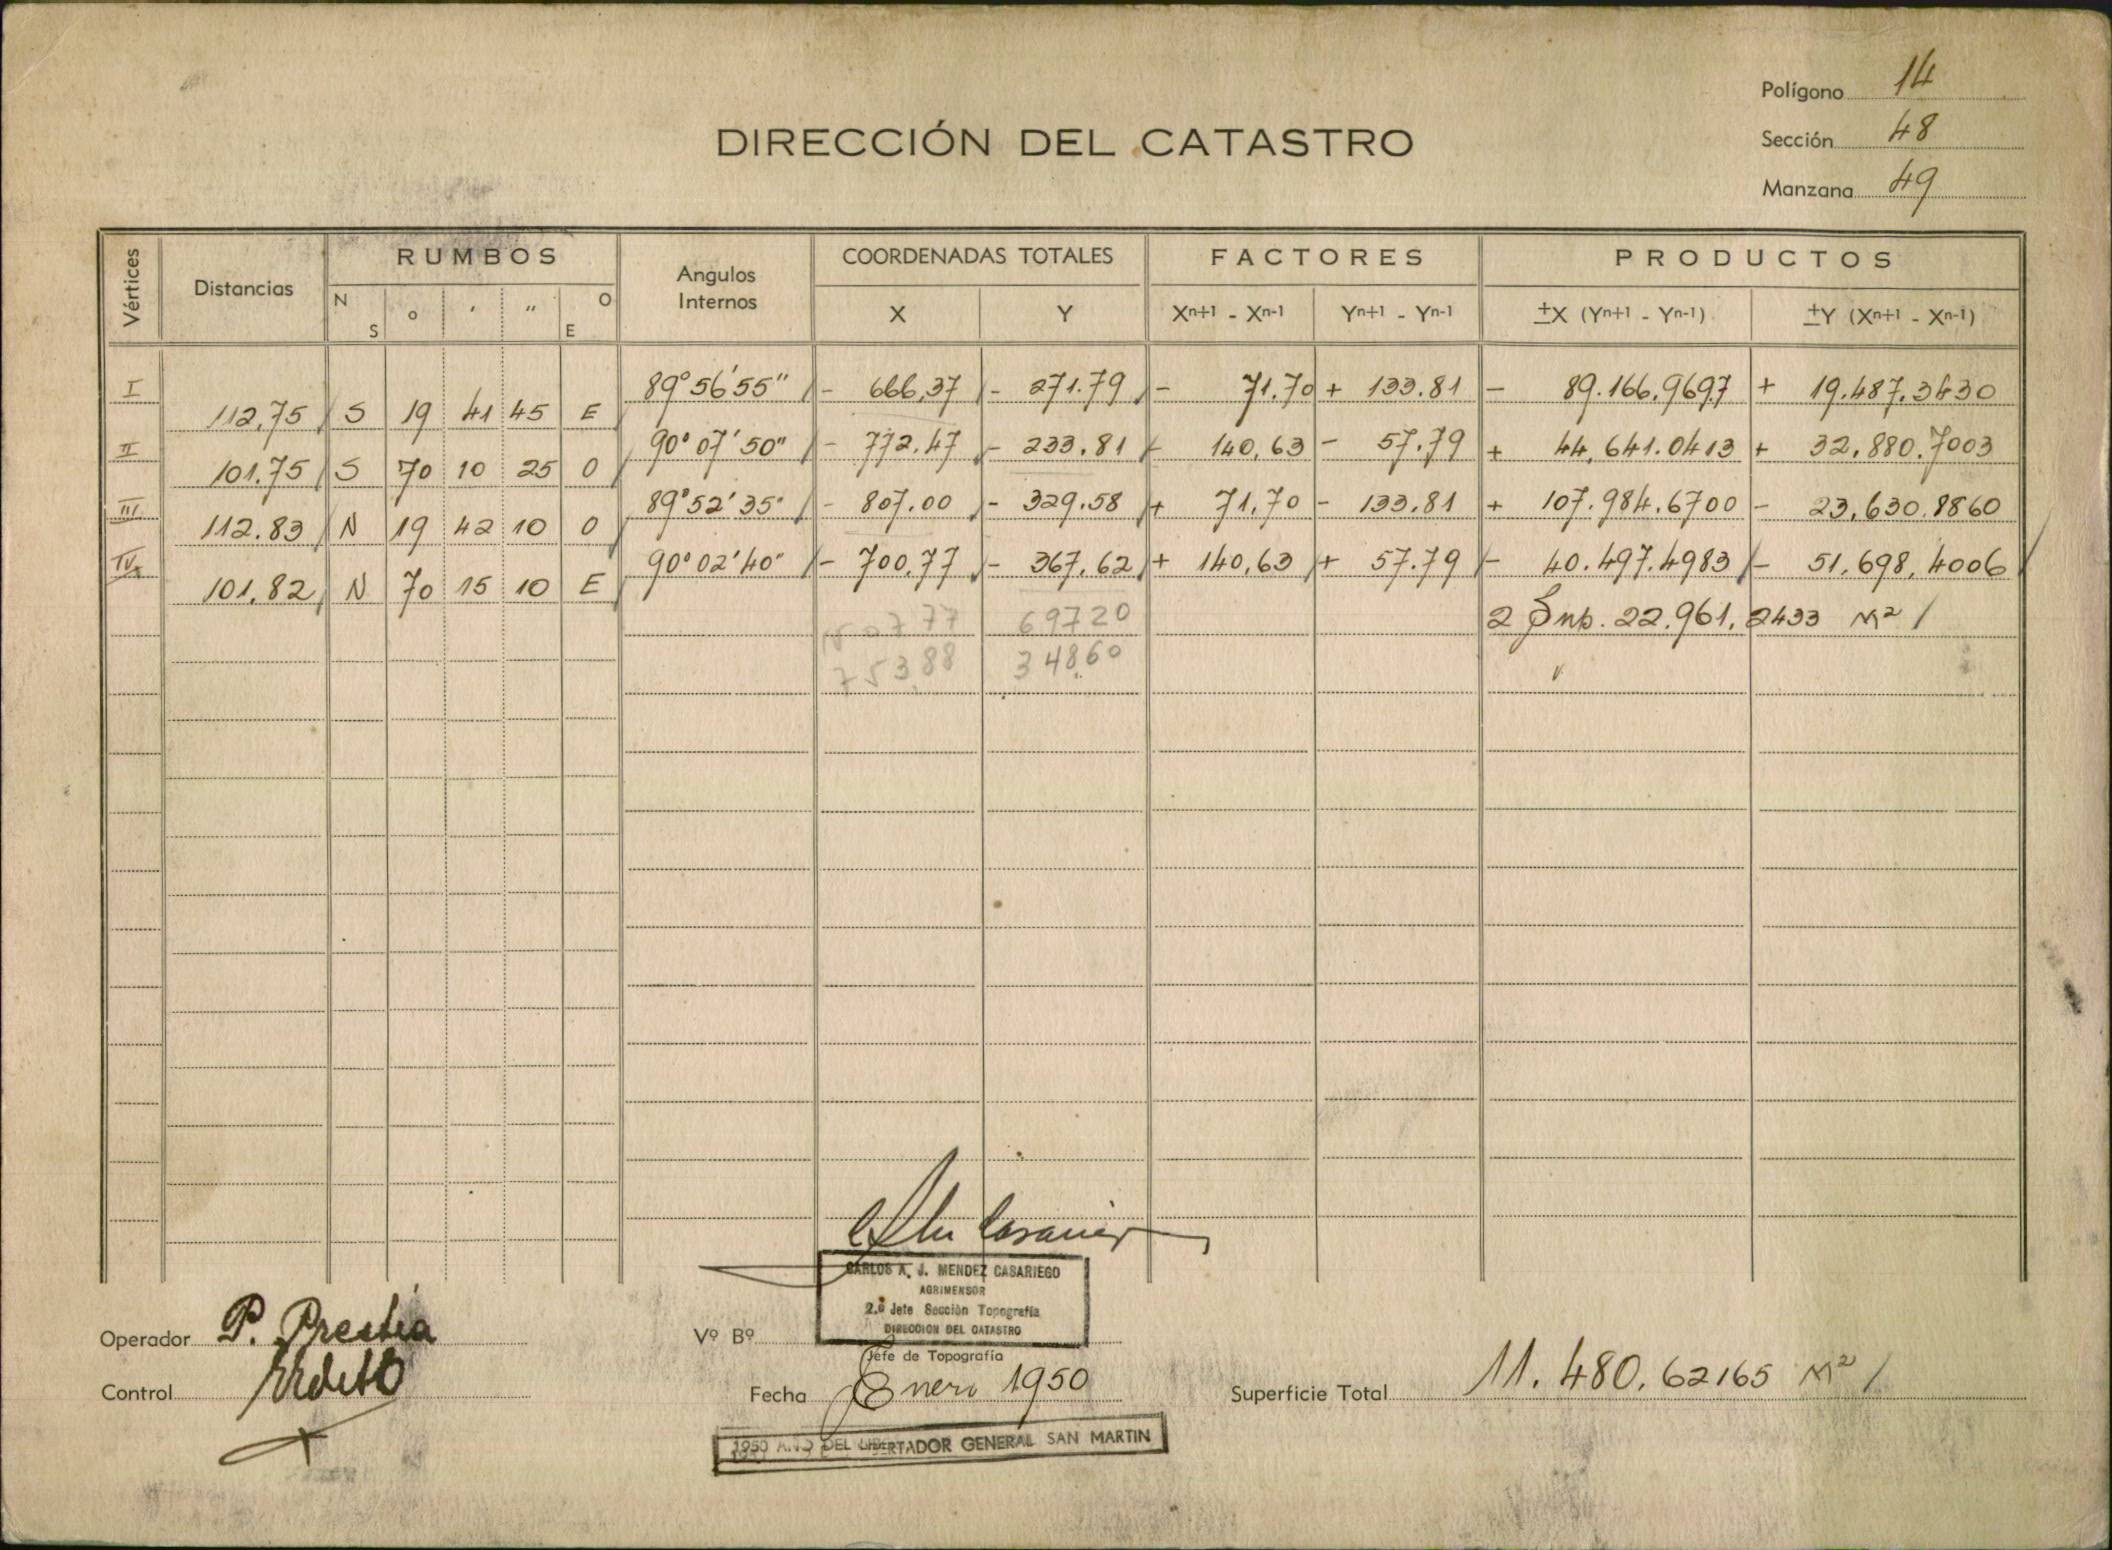 Polígono 14
DIRECCIÓN DEL CATASTRO
Sección 48
Manzana 49
Vértices Distancias RUMBOS Angulos Internos COORDENADAS TOTALES FACTORES PRODUCTOS
N S o ' " O E X Y Xn+1 - Xn-1 Yn+1 - Yn-1 ±X (Yn+1 - Yn-1) ±Y (Xn+1 - Xn-1)
I 89°56'55" - 666,37 - 271.79 - 71.70 + 133.81 - 89.166,9697 + 19.487,3430
112,75 S 19 41 45 E
II 90°07'50" - 772.47 - 233.81 - 140,63 - 57.79 + 44.641.0413 + 32.880.7003
101.75 S 70 10 25 O
III 89°52'35" - 807.00 - 329.58 + 71,70 - 133.81 + 107.984.6700 - 23,630.8860
112.83 N 19 42 10 O
IV 90°02'40" - 700,77 - 367,62 + 140,63 + 57.79 - 40.497.4983 - 51,698,4006
101.82 N 70 15 10 E
69720
2 Sup. 22.961,2433 M²
753,88 34860
CARLOS A. J. MENDEZ CASARIEGO
AGRIMENSOR
2.º Jefe Sección Topografía
DIRECCION DEL CATASTRO
Operador P. Prestia Vº Bº
Jefe de Topografía
Control Fecha Enero 1950 Superficie Total 11.480,62165 M²
1950 AÑO DEL LIBERTADOR GENERAL SAN MARTIN